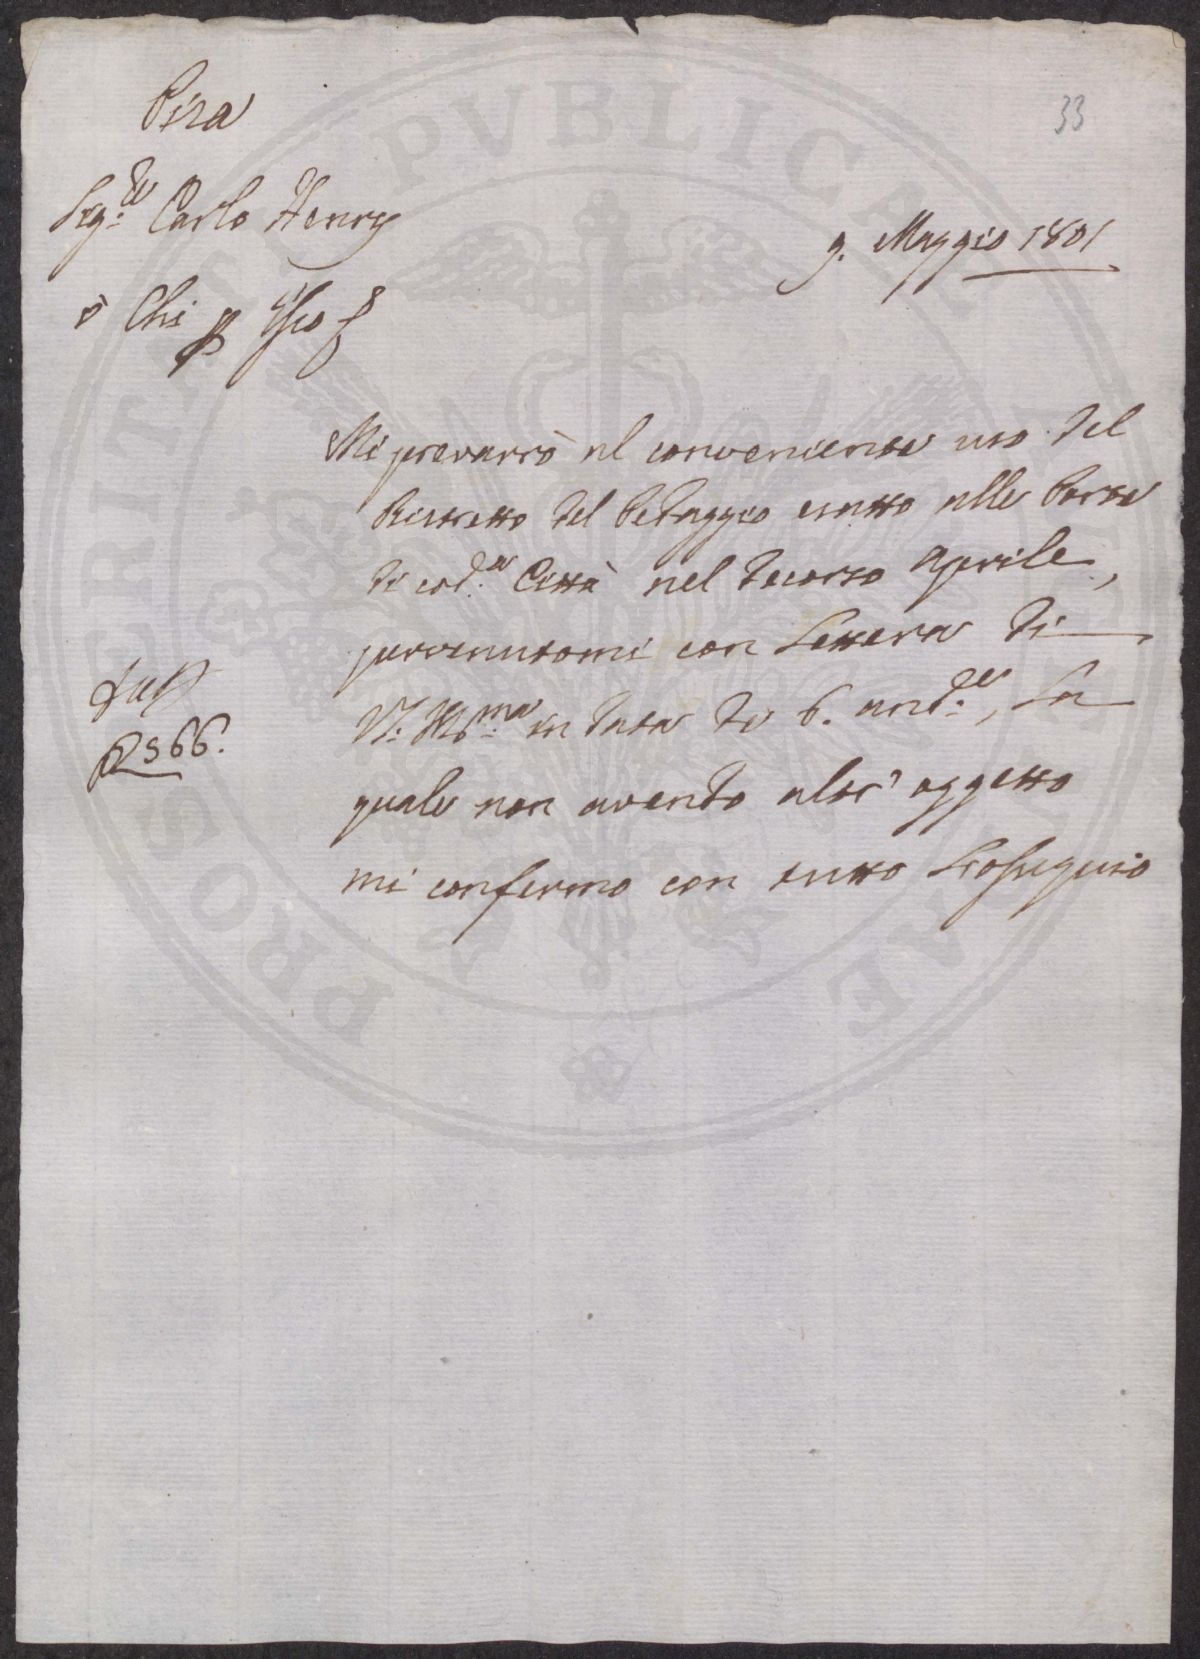 Pisa
33
Sig.re Carlo Henry
9. Maggio 1801
ò Chi p
Mi prevarrò al conveniente uso del
Ristretto del Pedaggio esatto alle Porte
di cod.a Città nel decorso Aprile,
pervenutomi con Lettera di
V.S. Ill.ma in data de 6. and.e, La
quale non avendo altr' oggetto
mi confermo con tutto L'ossequio
2566.
PROSPERITATI PVBLICAE AVGENDAE